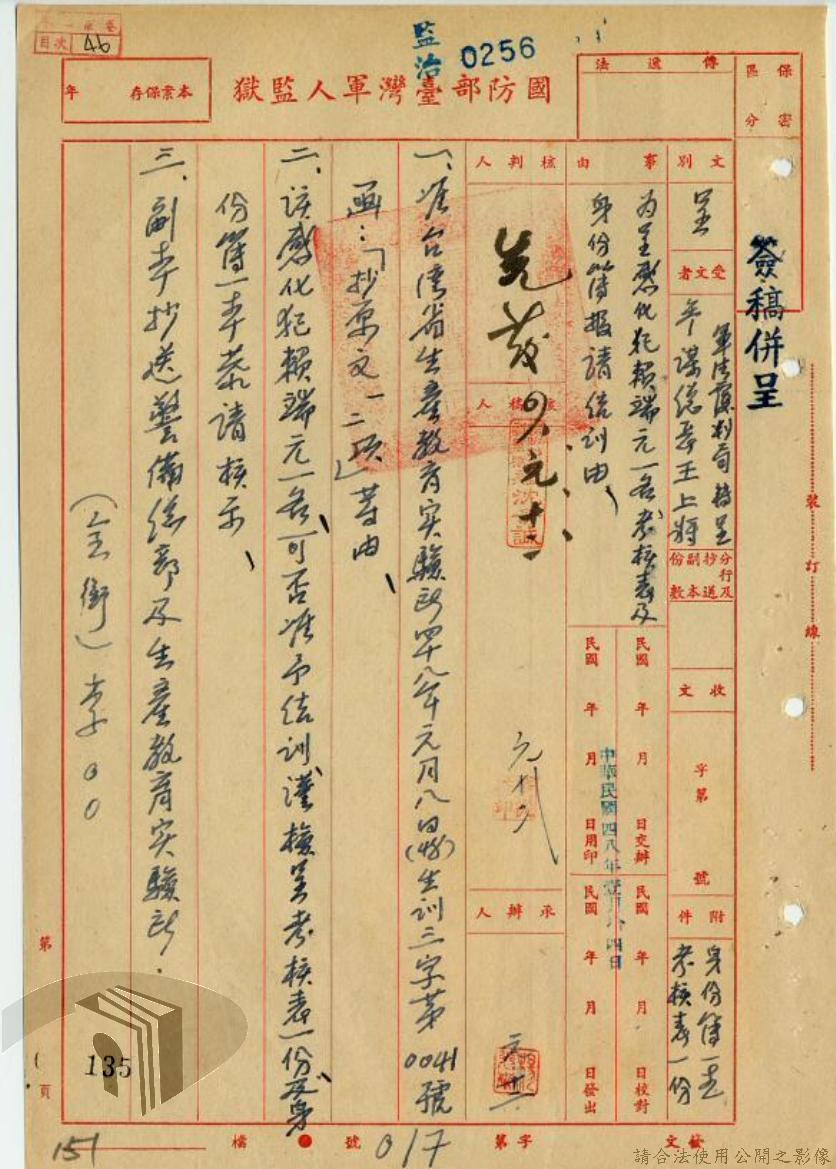 目次 46
監治 0256
國防部臺灣軍人監獄
本案保存 年
傳遞法
保密區分
簽稿併呈
文別 呈
受文者
軍法覆判局 轉呈
參謀總長王上將
分行及抄送副本份數
收文 字第 號
附件
身份簿一本
考核表一份
事由
為呈感化犯賴瑞元一名考核表及
身份簿報請結訓由
民國 年 月 日交辦
民國 年 月 日校對
民國 年 月 日用印
民國 年 月 日發出
中華民國四八年壹月 四日
核判人
核稿人
承辦人
一、准台灣省生產教育實驗所四十八年元月八日(48)生訓三字第0041號
函:「抄原文一二項」等由
二、該感化犯賴瑞元一名可否准予結訓謹檢呈考核表一份及身
份簿一本恭請核示
三、副本抄送警備總部及生產教育實驗所.
(全銜)李○○
裝訂線
第 135 頁
發文 字第 017 號
檔
151
請合法使用公開之影像